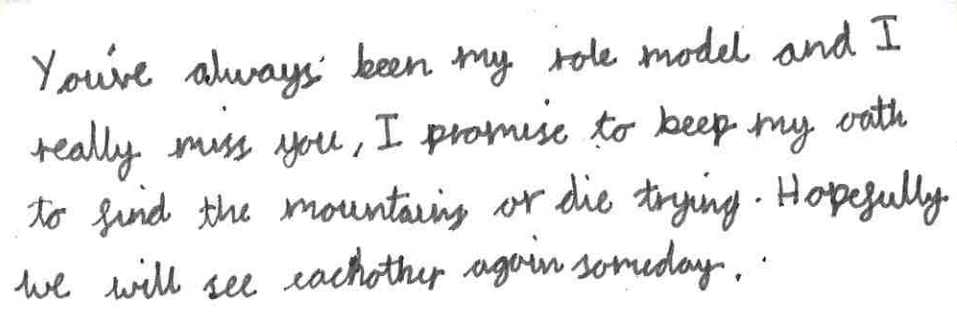 You've always been my role model and I
really miss you, I promise to keep my oath
to find the mountains or die trying. Hopefully
we will see eachother again someday.